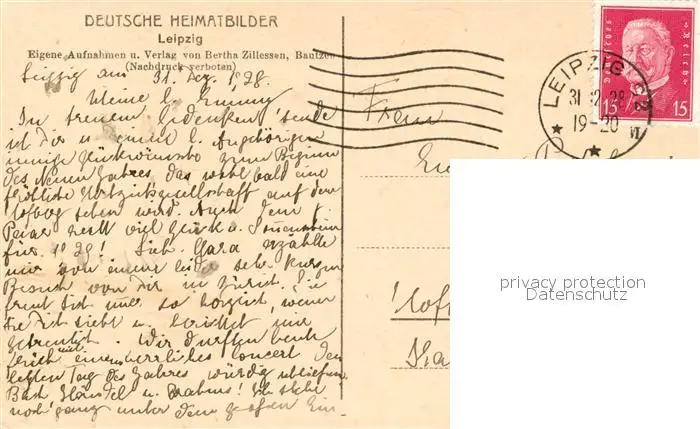 DEUTSCHE HEIMATBILDER
Leipzig
Eigene Aufnahmen u. Verlag von Bertha Zillessen, Bautzen
(Nachdruck verboten)
Leipzig am 31. Dez. 1928.
Meine l. Emmy
In treuem Gedenken sende
ich Dir u. l. Angehörigen
innige Glückwünsche zum Beginn
des Neuen Jahres, das wohl bald eine
fröhliche Hochzeitsgesellschaft auf dem
sehen wird. Auch dem
Paar recht viel Glück u. Sonnenschein
für 1928! Lieb. erzählte
mir von einem leider sehr kurzen
Besuch von Dir in Zürich. Sie
freut sich immer so herzlich, wenn
sie Dich sieht u. mir
. Wir durften heute
mit einem herrliches Concert den
letzten Tag des Jahres würdig
Bach Händel u. Brahms! Ich stehe
noch ganz unter dem großen Ein-
Frau
LEIPZIG C2
31.12.28
19-20
VI
Deutsches Reich
15 15
privacy protection
Datenschutz